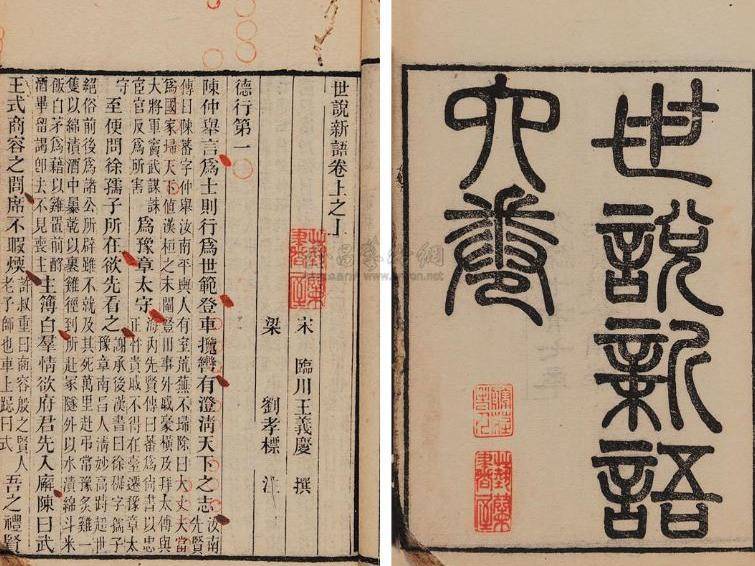 世說新語
六卷
世說新語卷上之上
宋 臨川王義慶 撰
梁 劉孝標 注
德行第一
陳仲舉言爲士則行爲世範登車攬轡有澄清天下之志 汝南先賢
傳曰陳蕃字仲舉汝南平輿人有室荒蕪不掃除曰大丈夫當
爲國家掃天下值漢桓之末閹豎用事外戚豪橫及拜太傅與
大將軍竇武謀誅
宦官反爲所害
爲豫章太守
海內先賢傳曰蕃爲尚書以忠
正忤貴戚不得在臺遷豫章太
守
至便問徐孺子所在欲先看之
謝承後漢書曰徐穉字孺子
豫章南昌人清妙高跱超世
絕俗前後爲諸公所辟雖不就及其死萬里赴弔常豫炙雞一
隻以綿漬酒中暴乾以裹雞徑到所赴冢隧外以水漬綿斗米
飯白茅爲藉以雞置前酹
酒畢留謁即去不見喪主
主簿白羣情欲府君先入廨陳曰武
王式商容之閭席不暇煖
許叔重曰商容殷之賢人
老子師也車上跽曰式
吾之禮賢